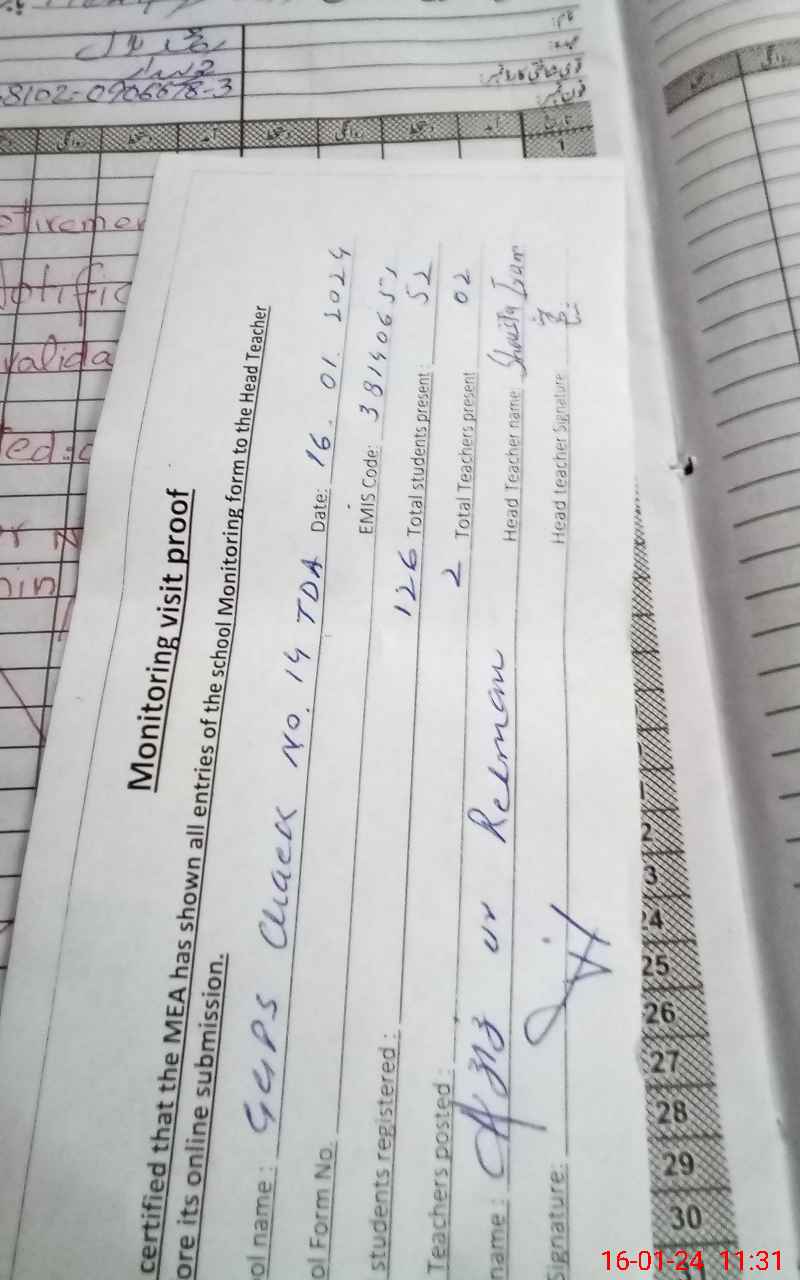 نام:
عہدہ:
قومی شناختی کارڈ نمبر:
فون نمبر:
8102-0906678-3
1
etiremen
Notific
valida
Monitoring visit proof
certified that the MEA has shown all entries of the school Monitoring form to the Head Teacher
ore its online submission.
ol name : GGPS Chack No. 14 TDA Date: 16.01.2024
ol Form No. EMIS Code: 38140651
students registered : 126 Total students present : 52
Teachers posted : 2 Total Teachers present 02
name : ur Rehman Head Teacher name:
Signature: Head teacher Signature:
2
3
24
25
26
27
28
29
30
16-01-24 11:31